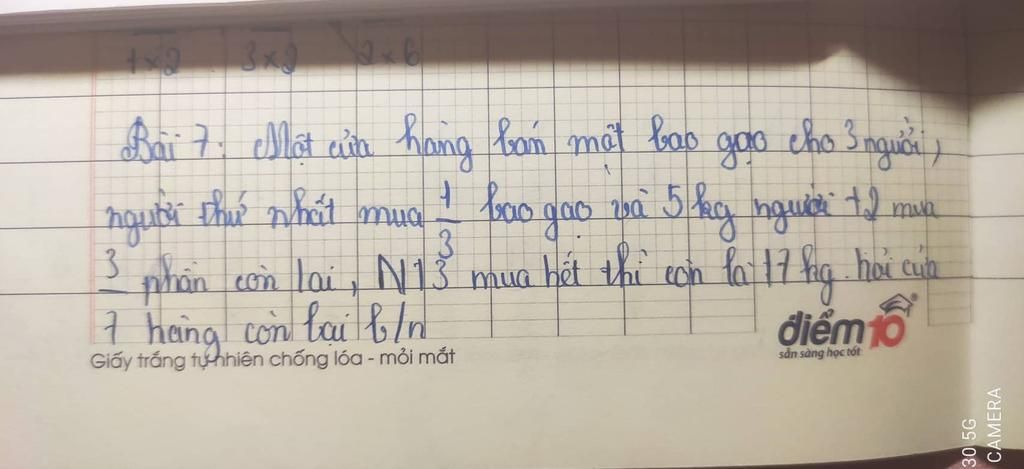 1×2 3×2 2×6
Bài 7: Một cửa hàng bán một bao gạo cho 3 người,
người thứ nhất mua 1/3 bao gạo và 5 kg người t2 mua
3/7 phần còn lại, N13 mua hết thì còn lại 17 kg. hỏi cửa
hàng còn lại b/n
điểm 10
sẵn sàng học tốt
Giấy trắng tự nhiên chống lóa - mỏi mắt
30 5G
CAMERA